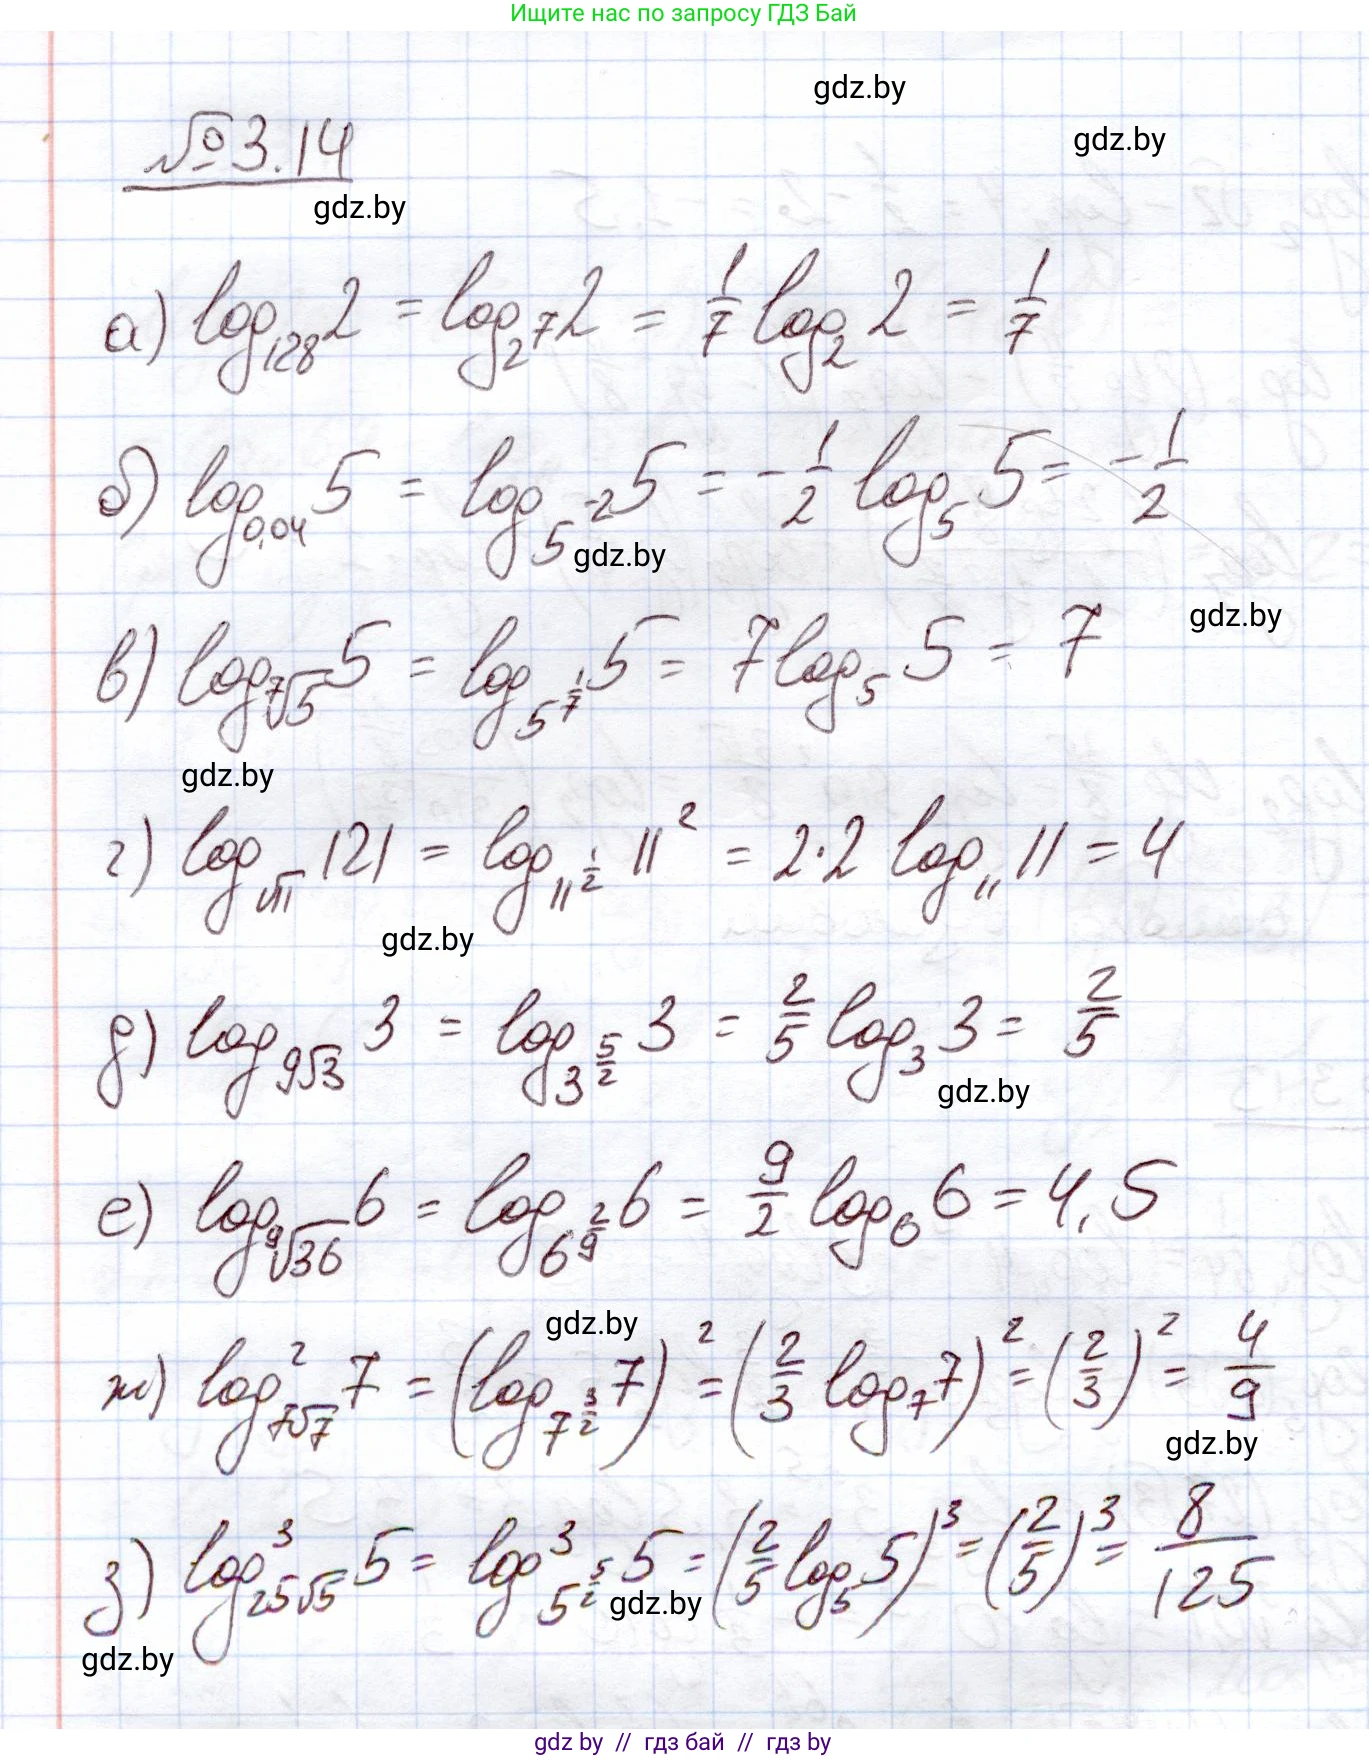 Ищите нас по запросу ГДЗ Бай
gdz.by
gdz.by
№3.14
gdz.by
а) log₁₂₈ 2 = log_{2^7} 2 = 1/7 log₂ 2 = 1/7
б) log_{0,04} 5 = log_{5^{-2}} 5 = -1/2 log₅ 5 = -1/2
gdz.by
gdz.by
в) log_{⁷√5} 5 = log_{5^{1/7}} 5 = 7 log₅ 5 = 7
gdz.by
г) log_{√11} 121 = log_{11^{1/2}} 11² = 2·2 log₁₁ 11 = 4
gdz.by
д) log_{9√3} 3 = log_{3^{5/2}} 3 = 2/5 log₃ 3 = 2/5
gdz.by
е) log_{⁹√36} 6 = log_{6^{2/9}} 6 = 9/2 log₆ 6 = 4,5
gdz.by
ж) log²_{7√7} 7 = (log_{7^{3/2}} 7)² = (2/3 log₇ 7)² = (2/3)² = 4/9
gdz.by
з) log³_{25√5} 5 = log³_{5^{5/2}} 5 = (2/5 log₅ 5)³ = (2/5)³ = 8/125
gdz.by
gdz.by
gdz by // гдз бай // гдз by